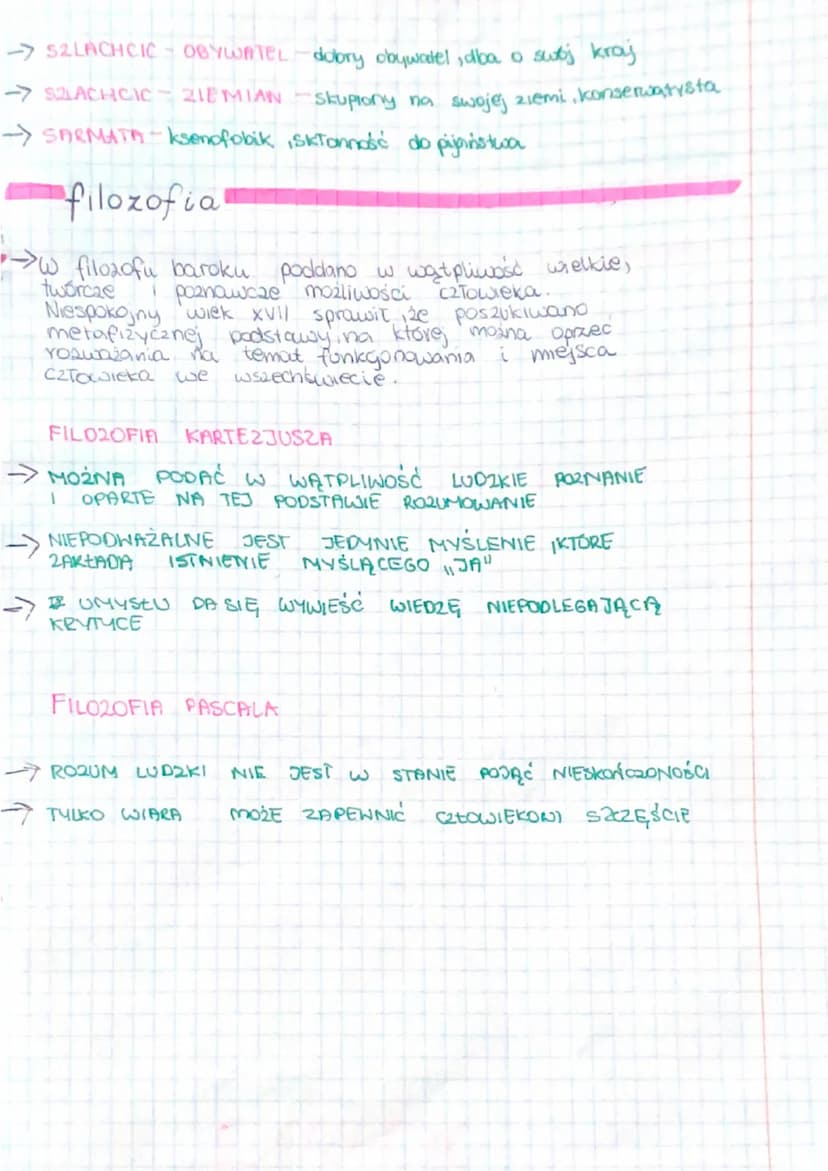 → SZLACHCIC - OBYWATEL - dobry obywatel, dba o swój kraj
→ SZLACHCIC - ZIEMIAN - skupiony na swojej ziemi, konserwatysta
→ SARMATA - ksenofobik, skłonność do pijaństwa
filozofia
→ W filozofii baroku poddano w wątpliwość wielkie,
twórcze i poznawcze możliwości człowieka.
Niespokojny wiek XVII sprawił, że poszukiwano
metafizycznej podstawy, na której można oprzeć
rozważania na temat funkcjonowania i miejsca
człowieka we wszechświecie.
FILOZOFIA KARTEZJUSZA
→ MOŻNA PODAĆ W WĄTPLIWOŚĆ LUDZKIE POZNANIE
I OPARTE NA TEJ PODSTAWIE ROZUMOWANIE
→ NIEPODWAŻALNE JEST JEDYNIE MYŚLENIE, KTÓRE
ZAKŁADA ISTNIENIE MYŚLĄCEGO „JA"
→ Z UMYSŁU DA SIĘ WYWIEŚĆ WIEDZĘ NIEPODLEGAJĄCĄ
KRYTYCE
FILOZOFIA PASCALA
→ ROZUM LUDZKI NIE JEST W STANIE POJĄĆ NIESKOŃCZONOŚCI
→ TYLKO WIARA MOŻE ZAPEWNIĆ CZŁOWIEKOWI SZCZĘŚCIE